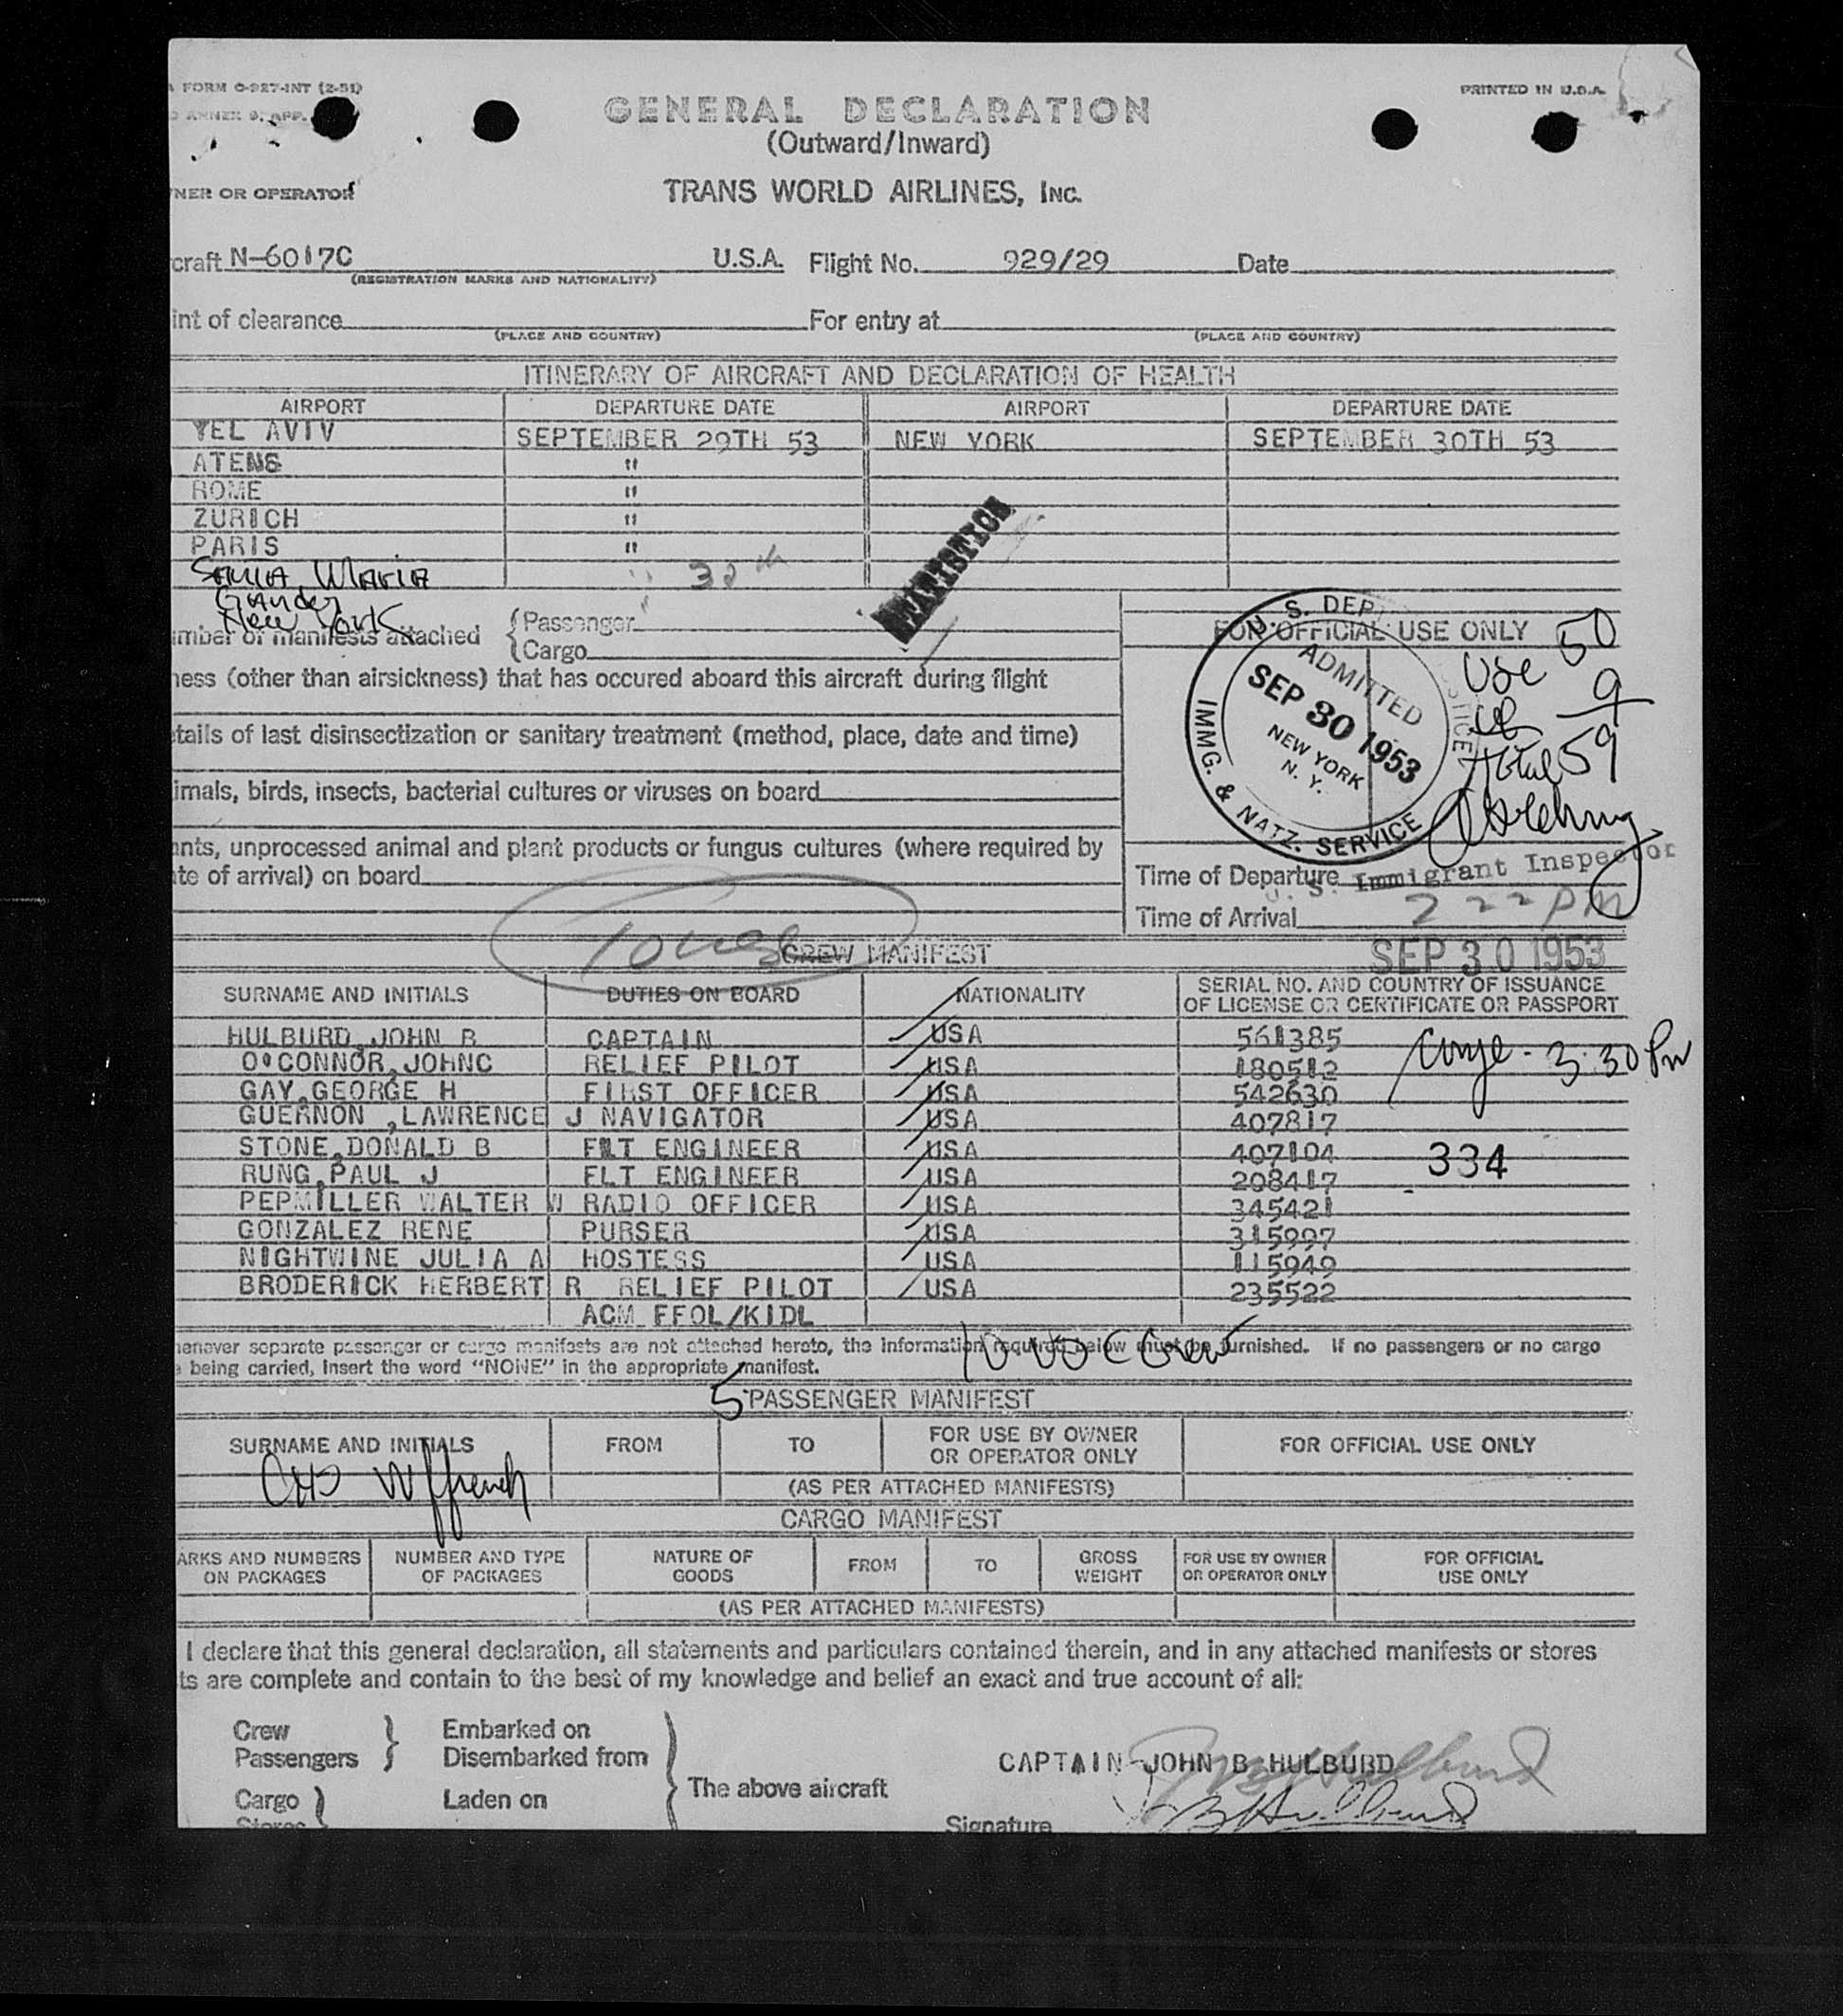 FORM C-927-INT (2-51)
PRINTED IN U.S.A.
ANNEX 9, APP.
GENERAL DECLARATION
(Outward/Inward)
NER OR OPERATOR
TRANS WORLD AIRLINES, INC.
craft N-6017C U.S.A. Flight No. 929/29 Date
(REGISTRATION MARKS AND NATIONALITY)
int of clearance For entry at
(PLACE AND COUNTRY) (PLACE AND COUNTRY)
ITINERARY OF AIRCRAFT AND DECLARATION OF HEALTH
AIRPORT DEPARTURE DATE AIRPORT DEPARTURE DATE
TEL AVIV SEPTEMBER 29TH 53 NEW YORK SEPTEMBER 30TH 53
ATENS "
ROME "
ZURICH "
PARIS "
Santa Maria " 30th
Gander
New York
mber of manifests attached { Passenger
Cargo
FOR OFFICIAL USE ONLY
U. S. DEPT. JUSTICE
ADMITTED
SEP 30 1953
NEW YORK
N. Y.
IMMG. & NATZ. SERVICE
USC 50
9
Total 59
ness (other than airsickness) that has occured aboard this aircraft during flight
tails of last disinsectization or sanitary treatment (method, place, date and time)
imals, birds, insects, bacterial cultures or viruses on board
ants, unprocessed animal and plant products or fungus cultures (where required by
te of arrival) on board
Time of Departure
U. S. Immigrant Inspector
Time of Arrival 2 22 PM
CREW MANIFEST
SEP 30 1953
SURNAME AND INITIALS DUTIES ON BOARD NATIONALITY SERIAL NO. AND COUNTRY OF ISSUANCE
OF LICENSE OR CERTIFICATE OR PASSPORT
HULBURD,JOHN B CAPTAIN USA 561385
O'CONNOR,JOHNC RELIEF PILOT USA 180512 3:30 PM
GAY,GEORGE H FIRST OFFICER USA 542630
GUERNON ,LAWRENCE J NAVIGATOR USA 407817
STONE,DONALD B FLT ENGINEER USA 407104 334
RUNG,PAUL J FLT ENGINEER USA 208417
PEPMILLER WALTER W RADIO OFFICER USA 345421
GONZALEZ RENE PURSER USA 315997
NIGHTWINE JULIA A HOSTESS USA 115949
BRODERICK HERBERT R RELIEF PILOT USA 235522
ACM FFOL/KIDL
henever separate passenger or cargo manifests are not attached hereto, the information required below must be furnished. If no passengers or no cargo
being carried, insert the word "NONE" in the appropriate manifest.
10 USC Crew
5 PASSENGER MANIFEST
SURNAME AND INITIALS FROM TO FOR USE BY OWNER
OR OPERATOR ONLY FOR OFFICIAL USE ONLY
(AS PER ATTACHED MANIFESTS)
CARGO MANIFEST
ARKS AND NUMBERS
ON PACKAGES NUMBER AND TYPE
OF PACKAGES NATURE OF
GOODS FROM TO GROSS
WEIGHT FOR USE BY OWNER
OR OPERATOR ONLY FOR OFFICIAL
USE ONLY
(AS PER ATTACHED MANIFESTS)
I declare that this general declaration, all statements and particulars contained therein, and in any attached manifests or stores
ts are complete and contain to the best of my knowledge and belief an exact and true account of all:
Crew Embarked on
Passengers Disembarked from
CAPTAIN JOHN B HULBURD
The above aircraft
Cargo Laden on
Stores
Signature